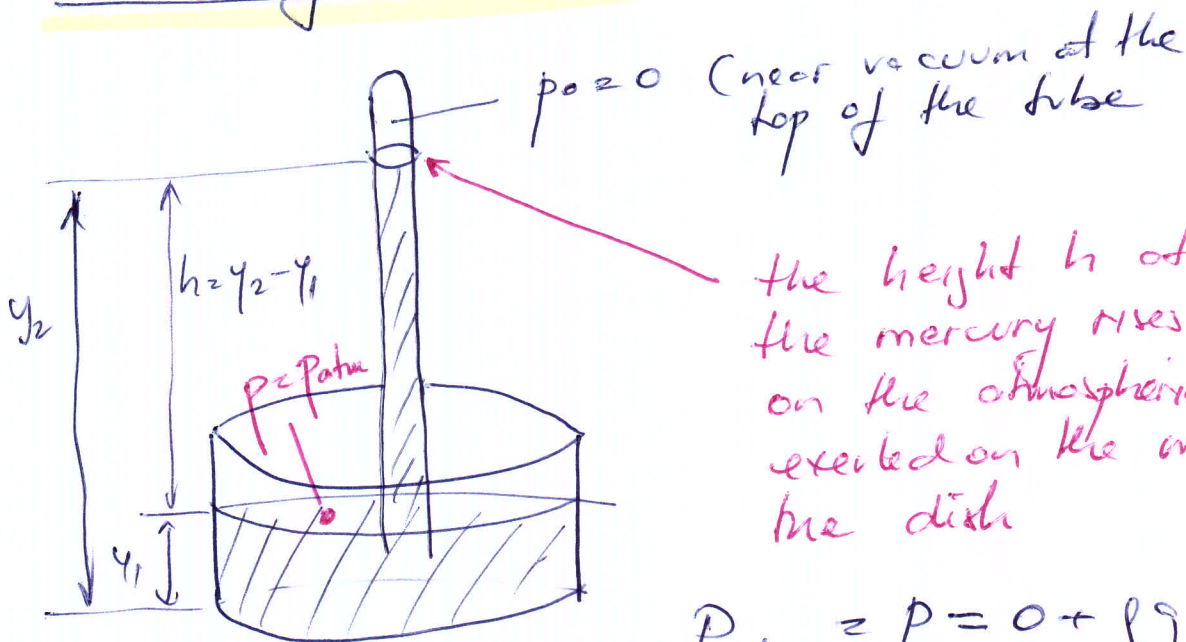 p₀ = 0 (near vacuum at the
top of the tube
h = y₂ - y₁
y₂
the height h of
the mercury rises
on the atmospheric
exerted on the
the dish
p = patm
y₁
= p = 0 + ρg